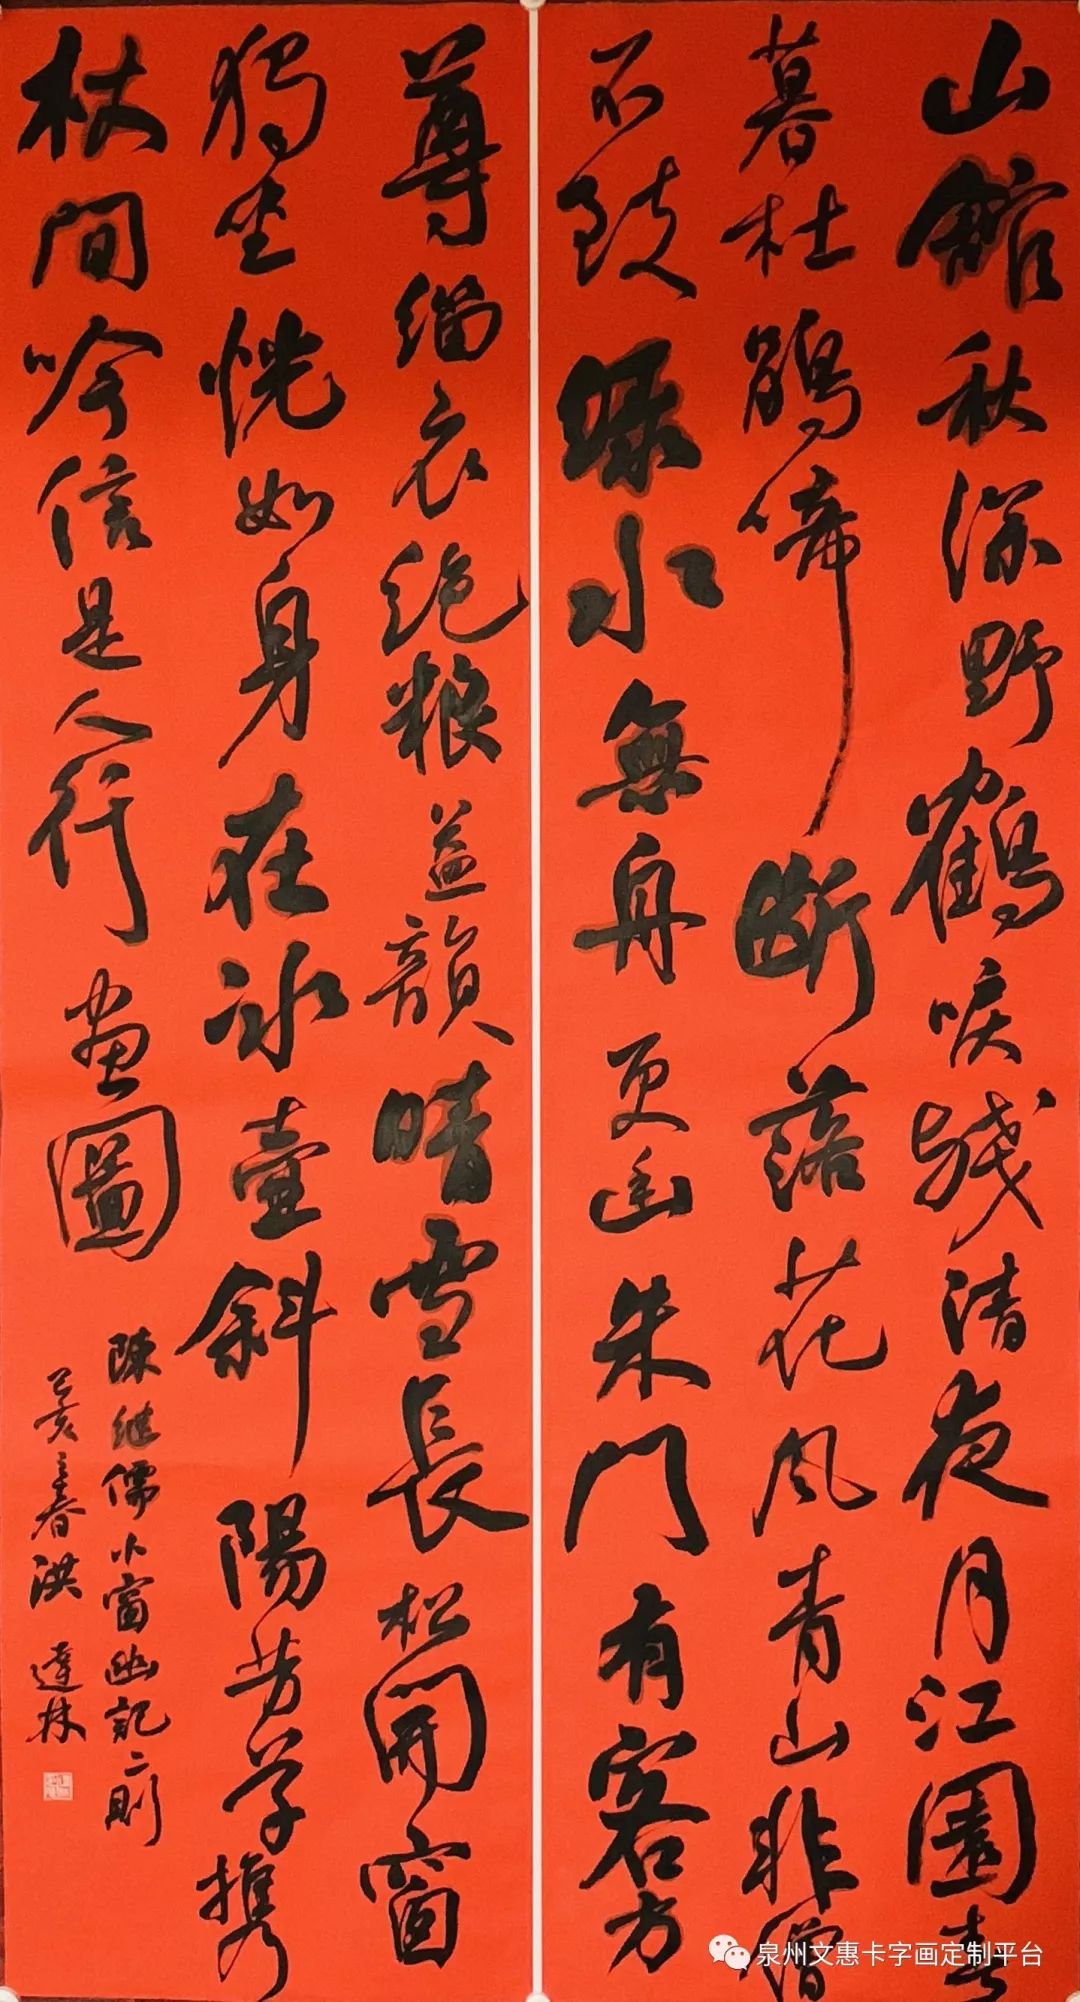 山館秋深野鶴唳殘清夜月江園春
暮杜鵑啼斷落花風青山非僧
不致綠水無舟更幽朱門有客方
尊緇衣絕粮益韻晴雪長松開窗
獨坐恍如身在冰壺斜陽芳草携
杖間吟信是人行畫圖
陳继儒小窗幽記二則
己亥春洪達林
泉州文惠卡字画定制平台